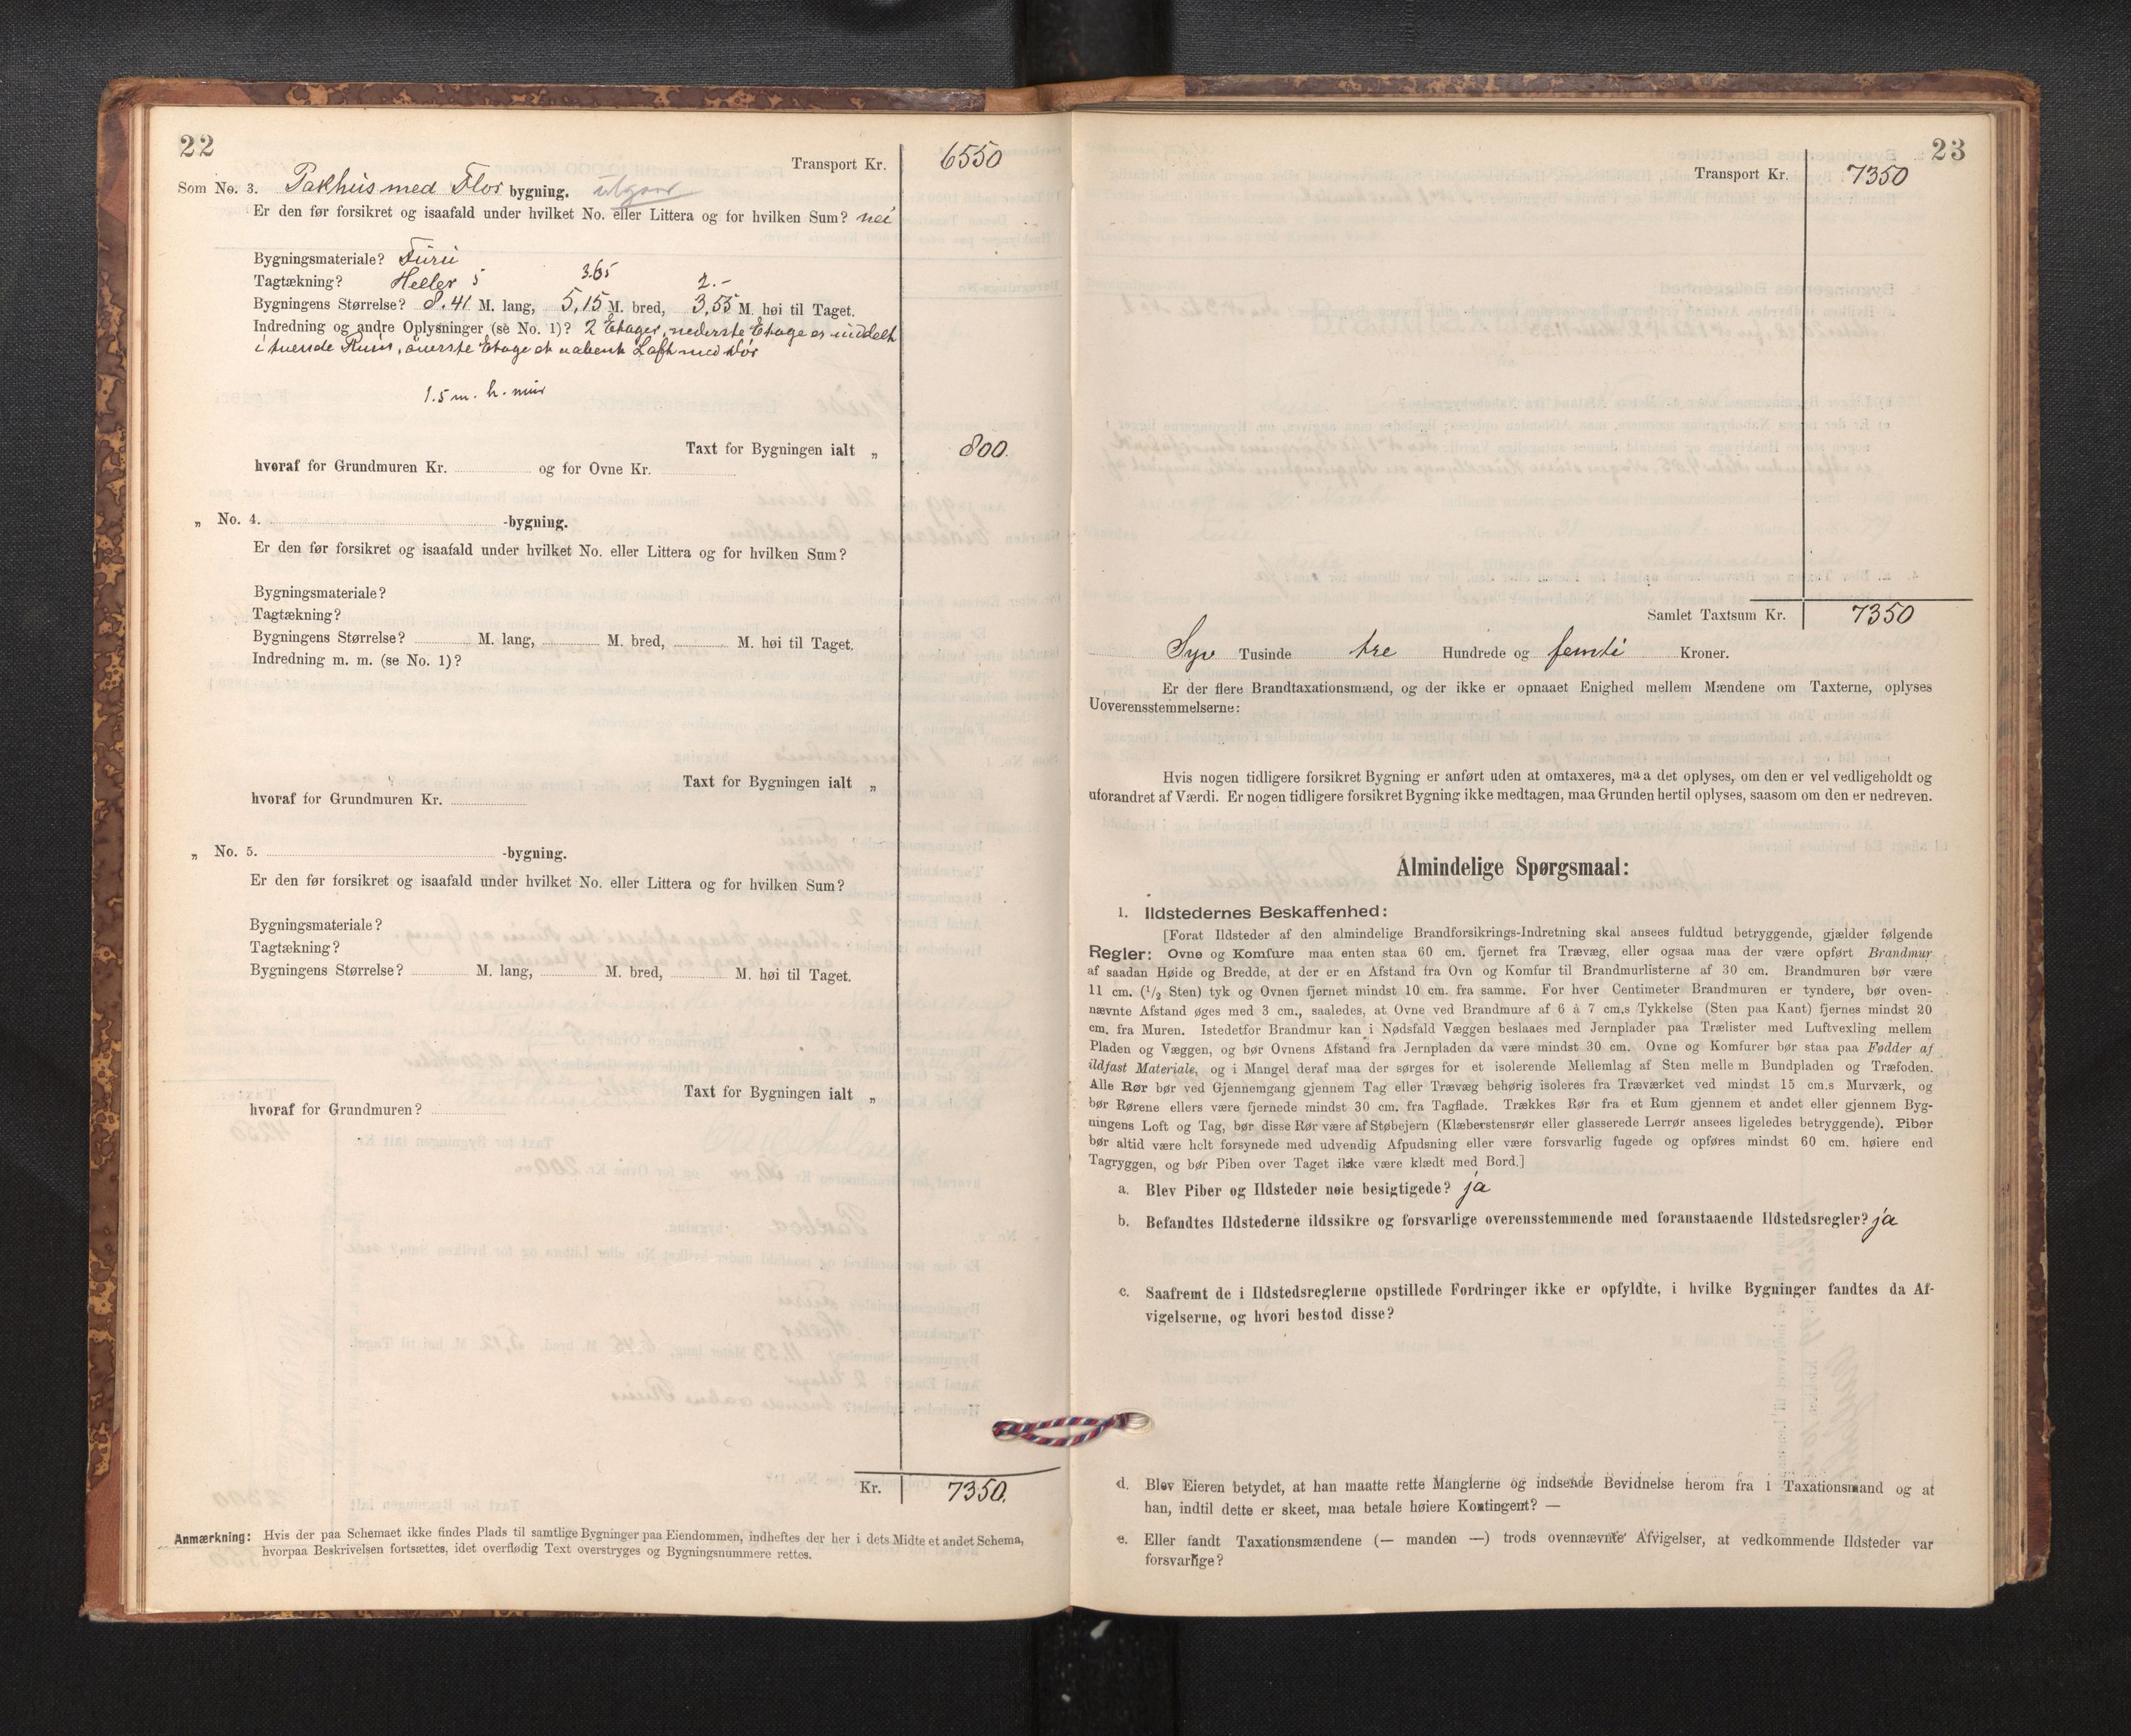 22
Transport Kr. 6550
Som No. 3. Pakhus med Flor bygning. utgaar
Er den før forsikret og isaafald under hvilket No. eller Littera og for hvilken Sum? nei
Bygningsmateriale? Furu
Tagtækning? Heller 5 3.65 2.-
Bygningens Størrelse? 8.41 M. lang, 5,15 M. bred, 3,55 M. høi til Taget.
Indredning og andre Oplysninger (se No. 1)? 2 Etager, nederste Etage er inddelt
i tvende Rum, øverste Etage et aabent Loft med dør
1.5 m. h. mur
Taxt for Bygningen ialt „ 800.
hvoraf for Grundmuren Kr. og for Ovne Kr.
„ No. 4. -bygning.
Er den før forsikret og isaafald under hvilket No. eller Littera og for hvilken Sum?
Bygningsmateriale?
Tagtækning?
Bygningens Størrelse? M. lang, M. bred, M. høi til Taget.
Indredning m. m. (se No. 1)?
Taxt for Bygningen ialt „
hvoraf for Grundmuren Kr.
„ No. 5. -bygning.
Er den før forsikret og isaafald under hvilket No. eller Littera og for hvilken Sum?
Bygningsmateriale?
Tagtækning?
Bygningens Størrelse? M. lang, M. bred, M. høi til Taget.
Taxt for Bygningen ialt „
hvoraf for Grundmuren?
Kr. 7350.
Anmærkning: Hvis der paa Schemaet ikke findes Plads til samtlige Bygninger paa Eiendommen, indheftes der her i dets Midte et andet Schema,
hvorpaa Beskrivelsen fortsættes, idet overflødig Text overstryges og Bygningsnummere rettes.
23
Transport Kr. 7350
Samlet Taxtsum Kr. 7350
Syv Tusinde tre Hundrede og femti Kroner.
Er der flere Brandtaxationsmænd, og der ikke er opnaaet Enighed mellem Mændene om Taxterne, oplyses
Uoverensstemmelserne:
Hvis nogen tidligere forsikret Bygning er anført uden at omtaxeres, maa det oplyses, om den er vel vedligeholdt og
uforandret af Værdi. Er nogen tidligere forsikret Bygning ikke medtagen, maa Grunden hertil oplyses, saasom om den er nedreven.
Almindelige Spørgsmaal:
1. Ildstedernes Beskaffenhed:
[Forat Ildsteder af den almindelige Brandforsikrings-Indretning skal ansees fuldtud betryggende, gjælder følgende
Regler: Ovne og Komfure maa enten staa 60 cm. fjernet fra Trævæg, eller ogsaa maa der være opført Brandmur
af saadan Høide og Bredde, at der er en Afstand fra Ovn og Komfur til Brandmurlisterne af 30 cm. Brandmuren bør være
11 cm. (1/2 Sten) tyk og Ovnen fjernet mindst 10 cm. fra samme. For hver Centimeter Brandmuren er tyndere, bør oven-
nævnte Afstand øges med 3 cm., saaledes, at Ovne ved Brandmure af 6 à 7 cm.s Tykkelse (Sten paa Kant) fjernes mindst 20
cm. fra Muren. Istedetfor Brandmur kan i Nødsfald Væggen beslaaes med Jernplader paa Trælister med Luftvexling mellem
Pladen og Væggen, og bør Ovnens Afstand fra Jernpladen da være mindst 30 cm. Ovne og Komfurer bør staa paa Fødder af
ildfast Materiale, og i Mangel deraf maa der sørges for et isolerende Mellemlag af Sten mellem Bundpladen og Træfoden.
Alle Rør bør ved Gjennemgang gjennem Tag eller Trævæg behørig isoleres fra Træværket ved mindst 15 cm.s Murværk, og
bør Rørene ellers være fjernede mindst 30 cm. fra Tagflade. Trækkes Rør fra et Rum gjennem et andet eller gjennem Byg-
ningens Loft og Tag, bør disse Rør være af Støbejern (Klæberstensrør eller glasserede Lerrør ansees ligeledes betryggende). Piber
bør altid være helt forsynede med udvendig Afpudsning eller være forsvarlig fugede og opføres mindst 60 cm. høiere end
Tagryggen, og bør Piben over Taget ikke være klædt med Bord.]
a. Blev Piber og Ildsteder nøie besigtigede? ja
b. Befandtes Ildstederne ildssikre og forsvarlige overensstemmende med foranstaaende Ildstedsregler? ja
c. Saafremt de i Ildstedsreglerne opstillede Fordringer ikke er opfyldte, i hvilke Bygninger fandtes da Af-
vigelserne, og hvori bestod disse?
d. Blev Eieren betydet, at han maatte rette Manglerne og indsende Bevidnelse herom fra i Taxationsmand og at
han, indtil dette er skeet, maa betale høiere Kontingent? —
e. Eller fandt Taxationsmændene (— manden —) trods ovennævnte Afvigelser, at vedkommende Ildsteder var
forsvarlige?